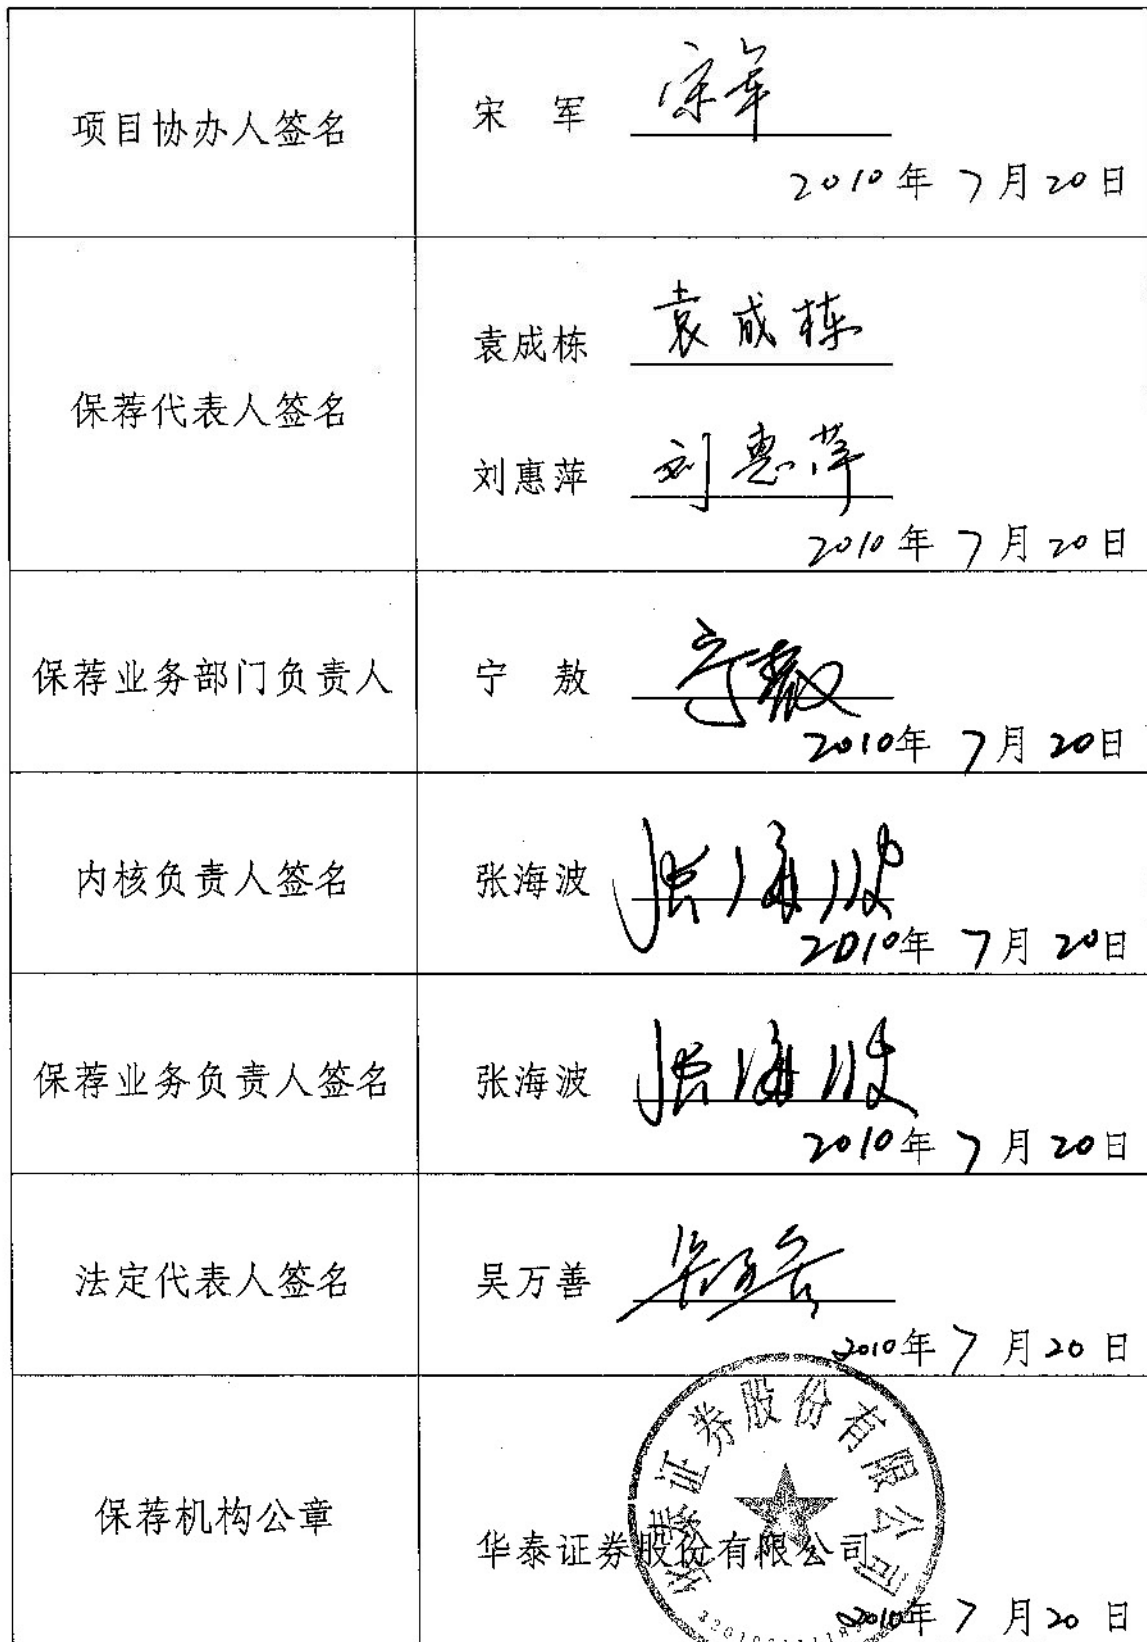 项目协办人签名
宋 军 宋军
2010年 7月20日
保荐代表人签名
袁成栋 袁成栋
刘惠萍 刘惠萍
2010年 7月20日
保荐业务部门负责人
宁 敖 宁敖
2010年 7月20日
内核负责人签名
张海波 张海波
2010年 7月20日
保荐业务负责人签名
张海波 张海波
2010年 7月20日
法定代表人签名
吴万善 吴万善
2010年 7月20日
保荐机构公章
华泰证券股份有限公司
华泰证券股份有限公司
2010年 7月20日